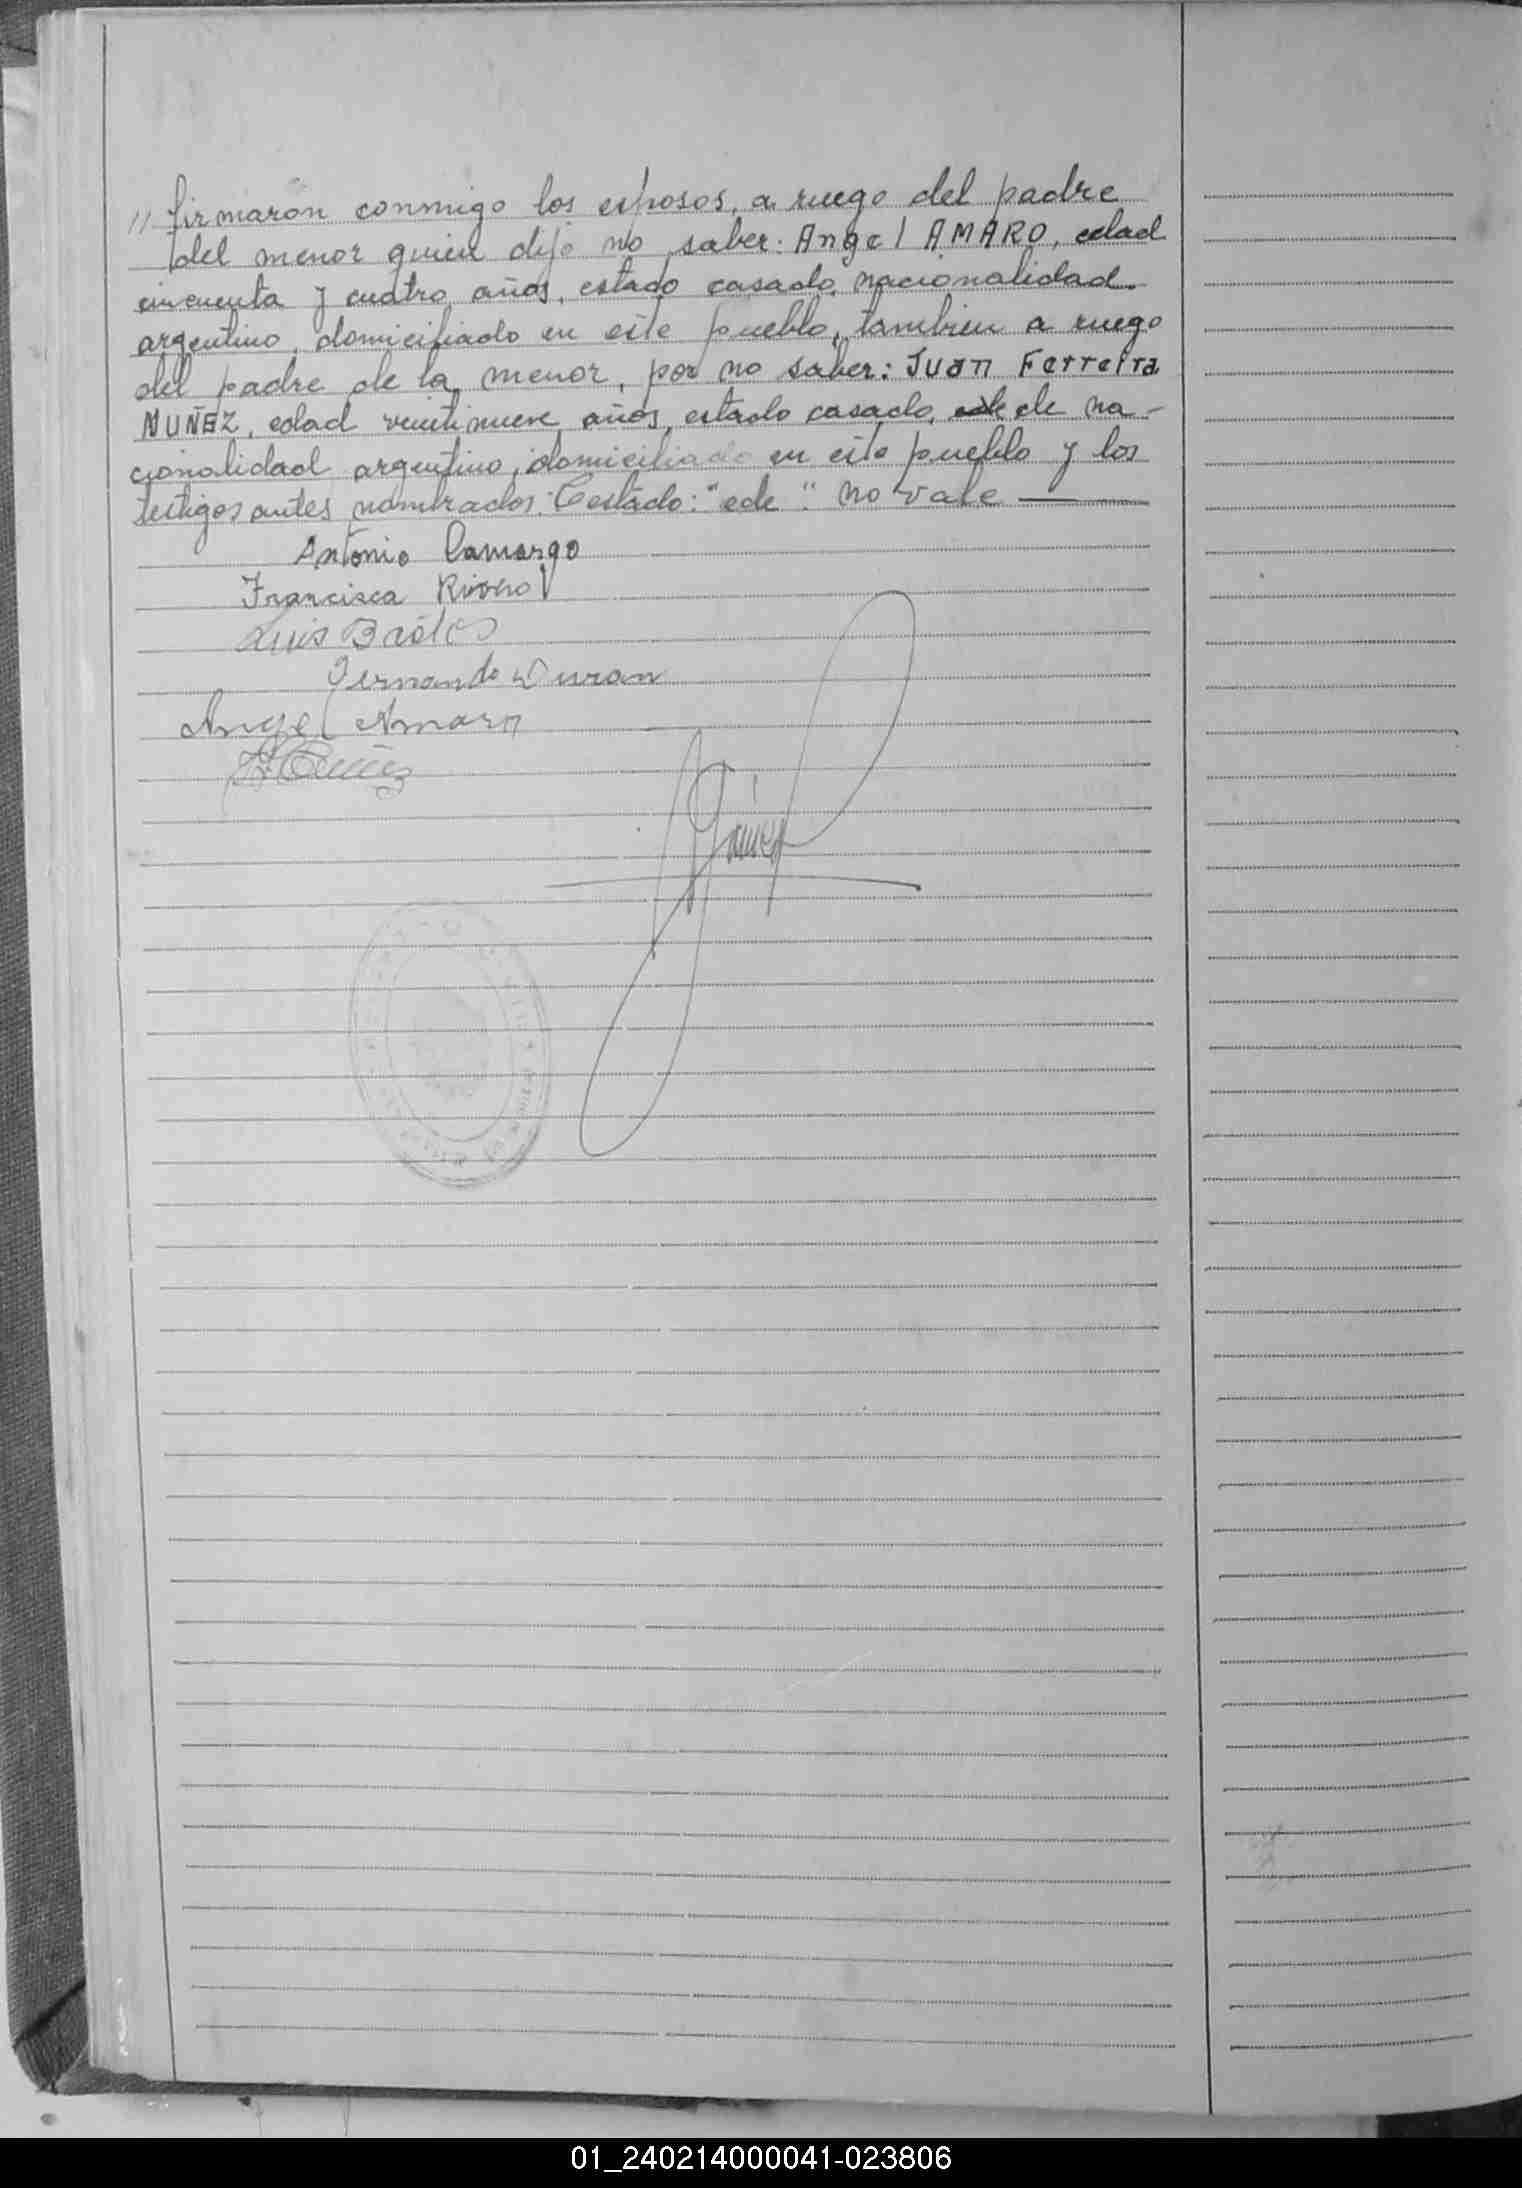 // firmaron conmigo los esposos, a ruego del padre
del menor quien dijo no saber: Angel AMARO, edad
cincuenta y cuatro años, estado casado, nacionalidad
argentino, domiciliado en este pueblo, tambien a ruego
del padre de la menor, por no saber: Juan Ferreira
NUÑEZ, edad veintinueve años, estado casado, de na-
cionalidad argentino, domiciliado en este pueblo y los
testigos antes nombrados. Testado: "ede". no vale
Antonio Camargo
Francisca Rivero
Luis
Fernando Duran
Angel Amaro
01_240214000041-023806